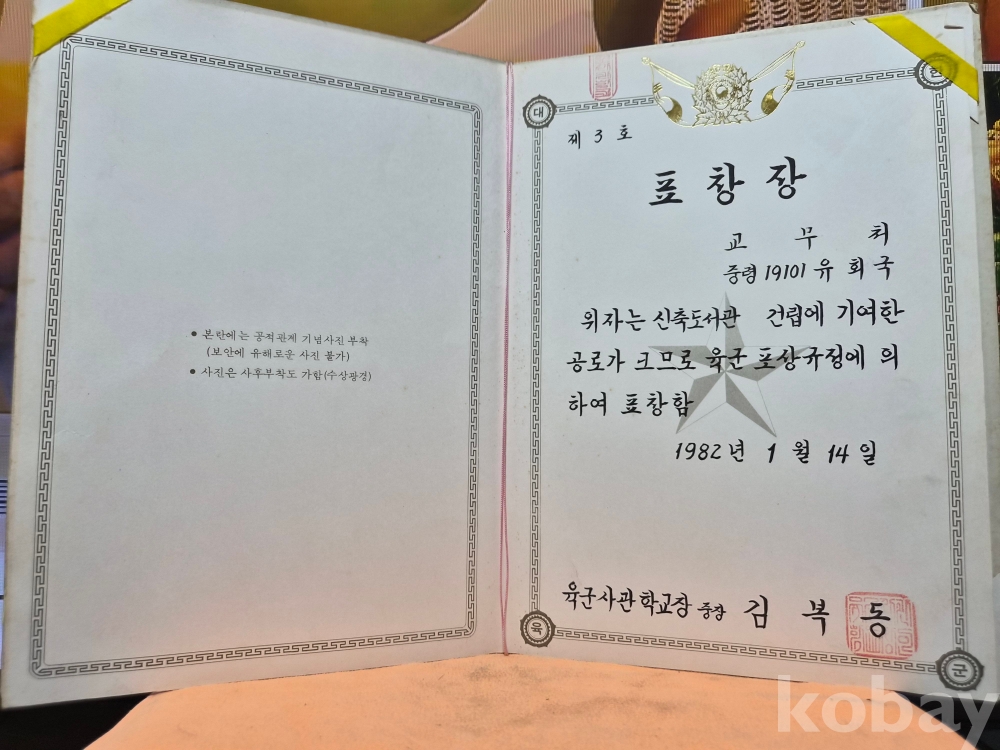 ● 본란에는 공적관계 기념사진 부착
(보안에 유해로운 사진 불가)
● 사진은 사후부착도 가함(수상광경)
대
한
제 3 호
표창장
교 무 처
중령 19101 유 회 국
위자는 신축도서관 건립에 기여한
공로가 크므로 육군 표상규정에 의
하여 표창함
1982년 1 월 14 일
육군사관학교장 중장 김 복 동
육
군
kobay